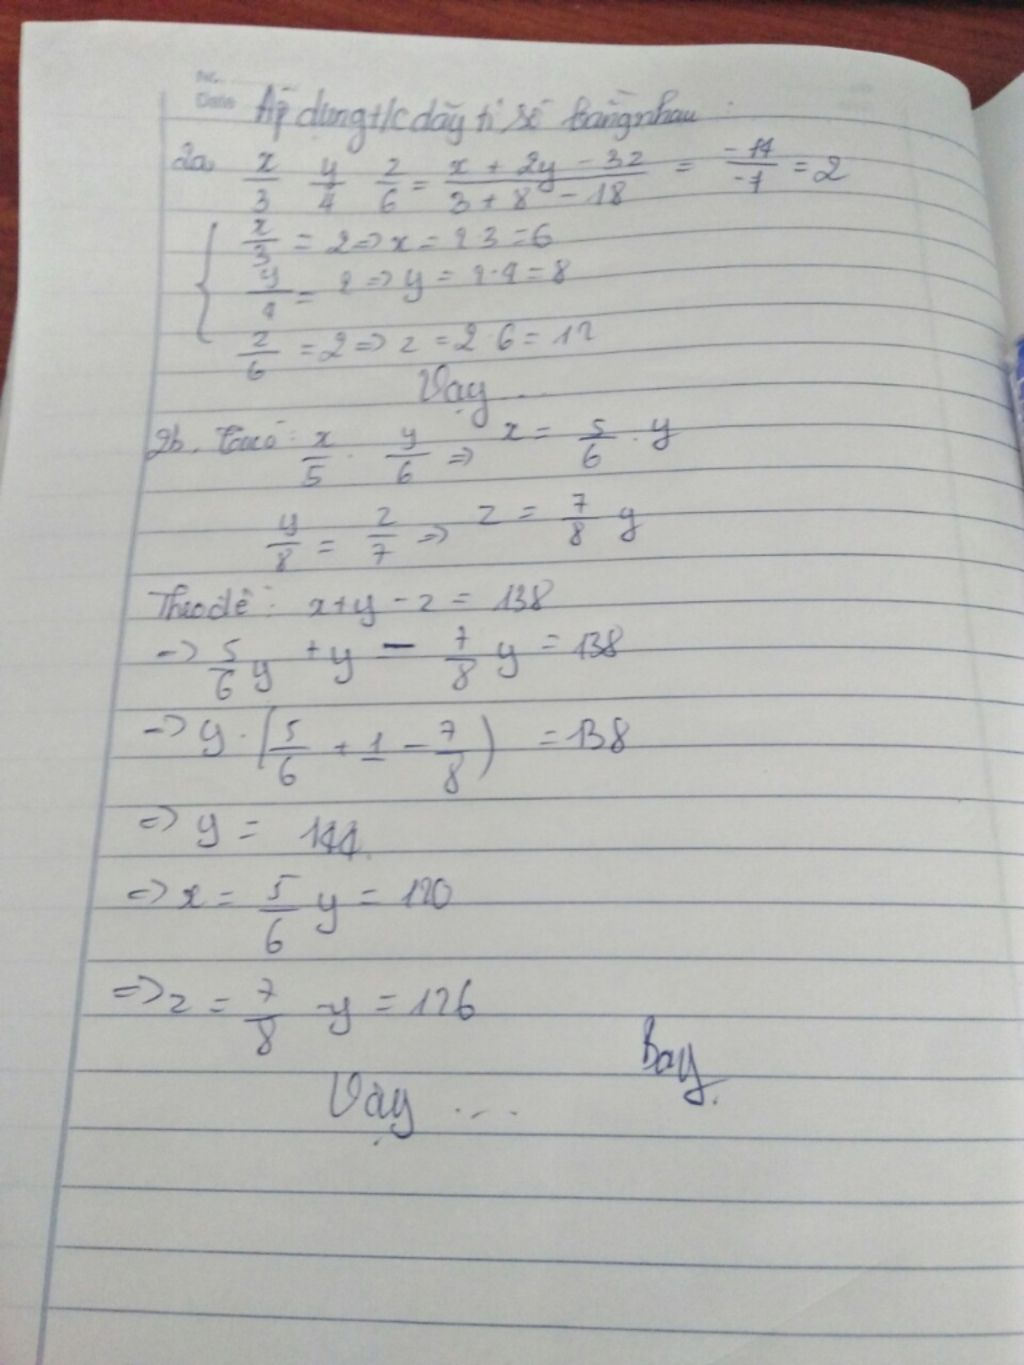 No.
Date
Áp dụng t/c dãy tỉ số bằng nhau :
2a, x/3 y/4 z/6 = (x + 2y - 3z)/(3 + 8 - 18) = -14/-7 = 2
{ x/3 = 2 => x = 2 3 = 6
y/4 = 2 => y = 2 · 4 = 8
z/6 = 2 => z = 2 · 6 = 12
Vậy ...
2b. Ta có : x/5 · y/6 => x = 5/6 · y
y/8 = z/7 => z = 7/8 y
Theo đề : x + y - z = 138
=> 5/6 y + y - 7/8 y = 138
=> y · (5/6 + 1 - 7/8) = 138
=> y = 144.
=> x = 5/6 y = 120
=> z = 7/8 - y = 126
Bay.
Vậy ...